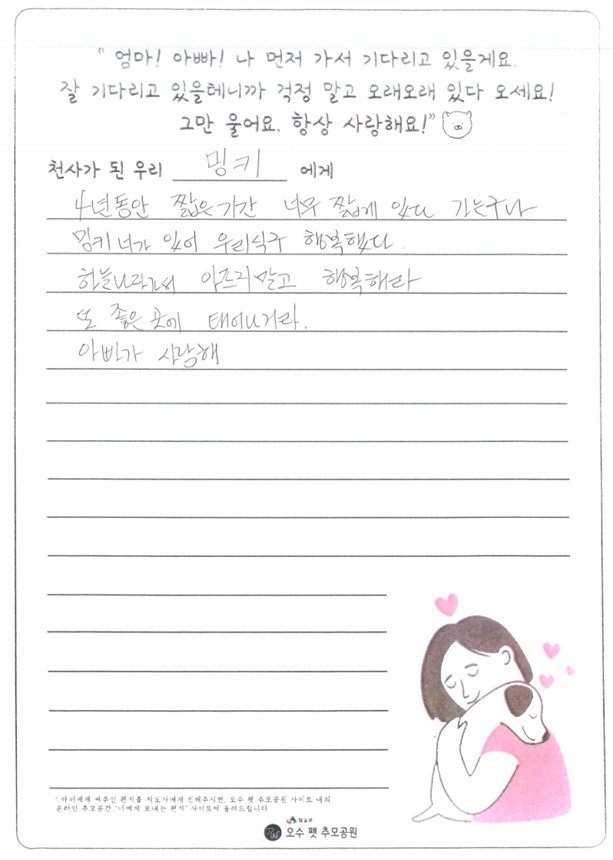 “ 엄마! 아빠! 나 먼저 가서 기다리고 있을게요.
잘 기다리고 있을테니까 걱정 말고 오래오래 있다 오세요!
그만 울어요. 항상 사랑해요!”
천사가 된 우리 밍키 에게
4년동안 짧은 기간 너무 짧게 있다 가는구나
밍키 너가 있어 우리식구 행복했다.
하늘나라가서 아프지말고 행복해라
또 좋은 곳에 태어나거라.
아빠가 사랑해
* 아이에게 써주신 편지를 지도사에게 전해주시면, 오수 펫 추모공원 사이트 내의
온라인 추모공간 '너에게 보내는 편지' 사이트에 올려드립니다
임실군
오수 펫 추모공원